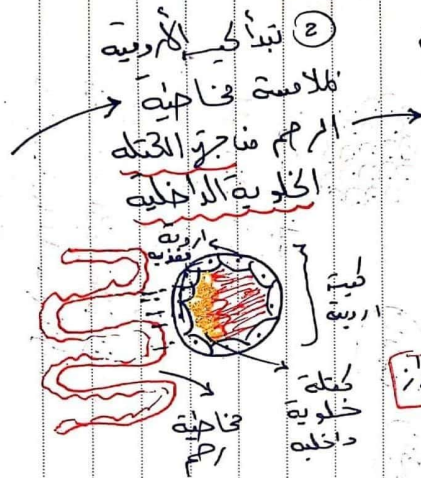 ② تبدأ كيسة الأرومية
ملامسة مخاطية
الرحم من جهة الكتلة
الخلوية الداخلية
ارومة
مغذية
كيسة
ارومية
كتلة
خلوية
داخلية
مخاطية
رحم